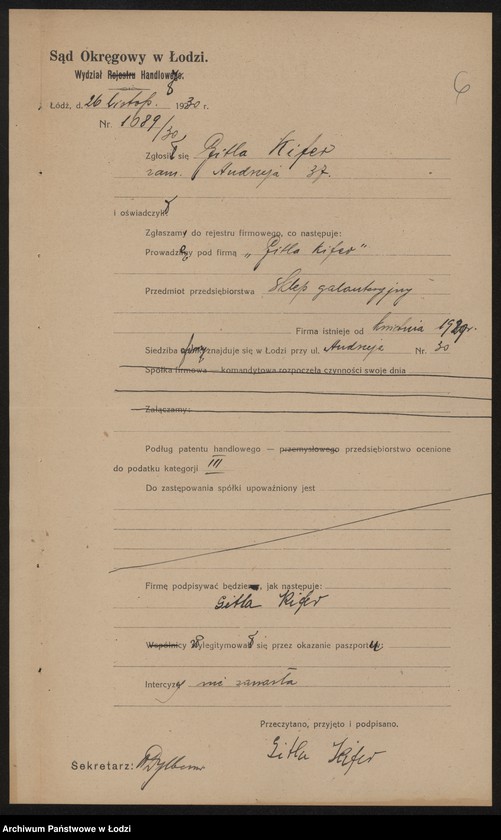 6
Sąd Okręgowy w Łodzi.
Wydział Rejestru Handlowego.
Łódź, d. 26 listop. 1930 r.
Nr. 1089/30
Zgłosił się Gitla Kifer
zam. Andrzeja 37.
i oświadczył
Zgłaszamy do rejestru firmowego, co następuje:
Prowadzę pod firmą „Gitla Kifer"
Przedmiot przedsiębiorstwa Sklep galanteryjny
Firma istnieje od kwietnia 1929r.
Siedziba firmy znajduje się w Łodzi przy ul. Andrzeja Nr. 30
Spółka firmowa — komandytowa rozpoczęła czynności swoje dnia
Załączamy:
Podług patentu handlowego — przemysłowego przedsiębiorstwo ocenione
do podatku kategorji III
Do zastępowania spółki upoważniony jest
Firmę podpisywać będzie, jak następuje:
Gitla Kifer
Wspólnicy wylegitymował się przez okazanie paszportu
Intercyzy nie zawarła
Przeczytano, przyjęto i podpisano.
Gitla Kifer
Sekretarz:
Archiwum Państwowe w Łodzi